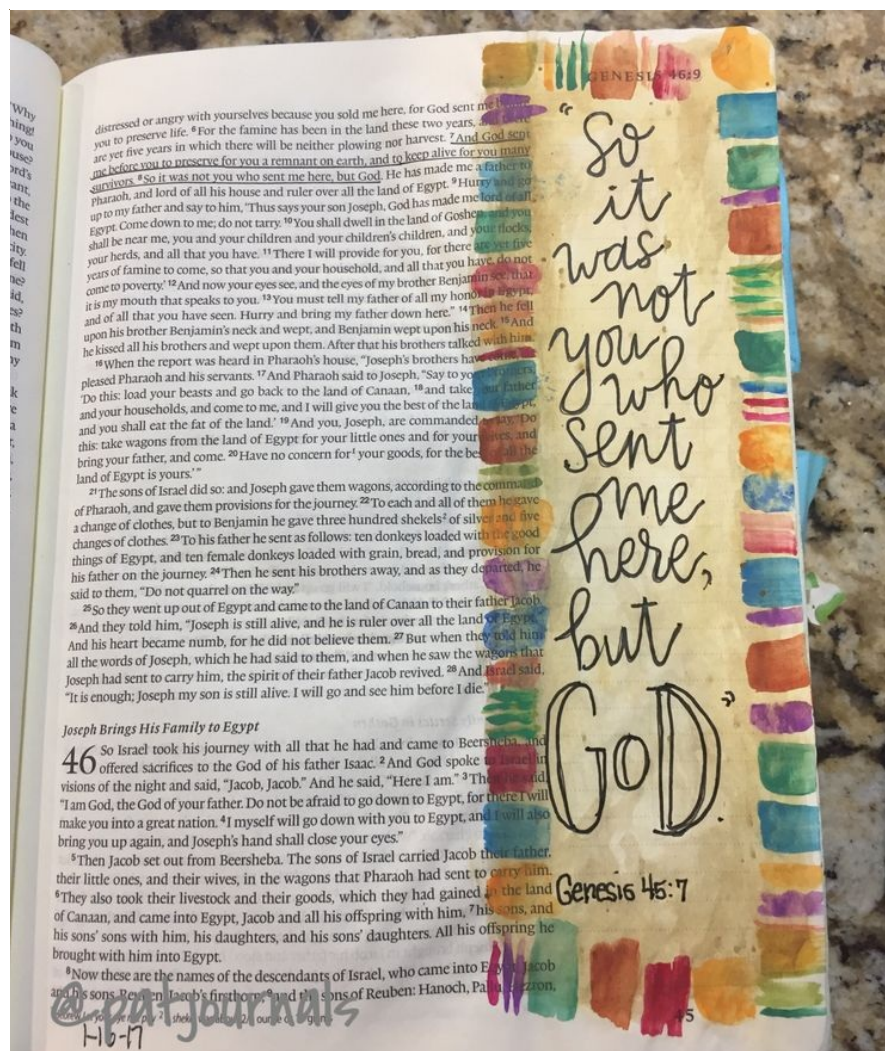 GENESIS 46:9
distressed or angry with yourselves because you sold me here, for God sent me before
you to preserve life. ⁶For the famine has been in the land these two years, and there
are yet five years in which there will be neither plowing nor harvest. ⁷And God sent
me before you to preserve for you a remnant on earth, and to keep alive for you many
survivors. ⁸So it was not you who sent me here, but God. He has made me a father to
Pharaoh, and lord of all his house and ruler over all the land of Egypt. ⁹Hurry and go
up to my father and say to him, ‘Thus says your son Joseph, God has made me lord of all
Egypt. Come down to me; do not tarry. ¹⁰You shall dwell in the land of Goshen, and you
shall be near me, you and your children and your children's children, and your flocks,
your herds, and all that you have. ¹¹There I will provide for you, for there are yet five
years of famine to come, so that you and your household, and all that you have, do not
come to poverty.’ ¹²And now your eyes see, and the eyes of my brother Benjamin see, that
it is my mouth that speaks to you. ¹³You must tell my father of all my honor in Egypt,
and of all that you have seen. Hurry and bring my father down here.” ¹⁴Then he fell
upon his brother Benjamin's neck and wept, and Benjamin wept upon his neck. ¹⁵And
he kissed all his brothers and wept upon them. After that his brothers talked with him.
¹⁶When the report was heard in Pharaoh's house, “Joseph's brothers have come,” it
pleased Pharaoh and his servants. ¹⁷And Pharaoh said to Joseph, “Say to your brothers,
‘Do this: load your beasts and go back to the land of Canaan, ¹⁸and take your father
and your households, and come to me, and I will give you the best of the land of Egypt,
and you shall eat the fat of the land.’ ¹⁹And you, Joseph, are commanded to say, ‘Do
this: take wagons from the land of Egypt for your little ones and for your wives, and
bring your father, and come. ²⁰Have no concern for¹ your goods, for the best of all the
land of Egypt is yours.’”
²¹The sons of Israel did so: and Joseph gave them wagons, according to the command
of Pharaoh, and gave them provisions for the journey. ²²To each and all of them he gave
a change of clothes, but to Benjamin he gave three hundred shekels² of silver and five
changes of clothes. ²³To his father he sent as follows: ten donkeys loaded with the good
things of Egypt, and ten female donkeys loaded with grain, bread, and provision for
his father on the journey. ²⁴Then he sent his brothers away, and as they departed, he
said to them, “Do not quarrel on the way.”
²⁵So they went up out of Egypt and came to the land of Canaan to their father Jacob.
²⁶And they told him, “Joseph is still alive, and he is ruler over all the land of Egypt.”
And his heart became numb, for he did not believe them. ²⁷But when they told him
all the words of Joseph, which he had said to them, and when he saw the wagons that
Joseph had sent to carry him, the spirit of their father Jacob revived. ²⁸And Israel said,
“It is enough; Joseph my son is still alive. I will go and see him before I die.”
Joseph Brings His Family to Egypt
46 So Israel took his journey with all that he had and came to Beersheba, and
offered sacrifices to the God of his father Isaac. ²And God spoke to Israel in
visions of the night and said, “Jacob, Jacob.” And he said, “Here I am.” ³Then he said,
“I am God, the God of your father. Do not be afraid to go down to Egypt, for there I will
make you into a great nation. ⁴I myself will go down with you to Egypt, and I will also
bring you up again, and Joseph's hand shall close your eyes.”
⁵Then Jacob set out from Beersheba. The sons of Israel carried Jacob their father,
their little ones, and their wives, in the wagons that Pharaoh had sent to carry him.
⁶They also took their livestock and their goods, which they had gained in the land
of Canaan, and came into Egypt, Jacob and all his offspring with him, ⁷his sons, and
his sons' sons with him, his daughters, and his sons' daughters. All his offspring he
brought with him into Egypt.
⁸Now these are the names of the descendants of Israel, who came into Egypt, Jacob
and his sons. Reuben, Jacob's firstborn, ⁹and the sons of Reuben: Hanoch, Pallu, Hezron,
@patjournals
1-16-17
45
“So
it
was
not
you
who
sent
me
here,
but
GOD.”
Genesis 45:7